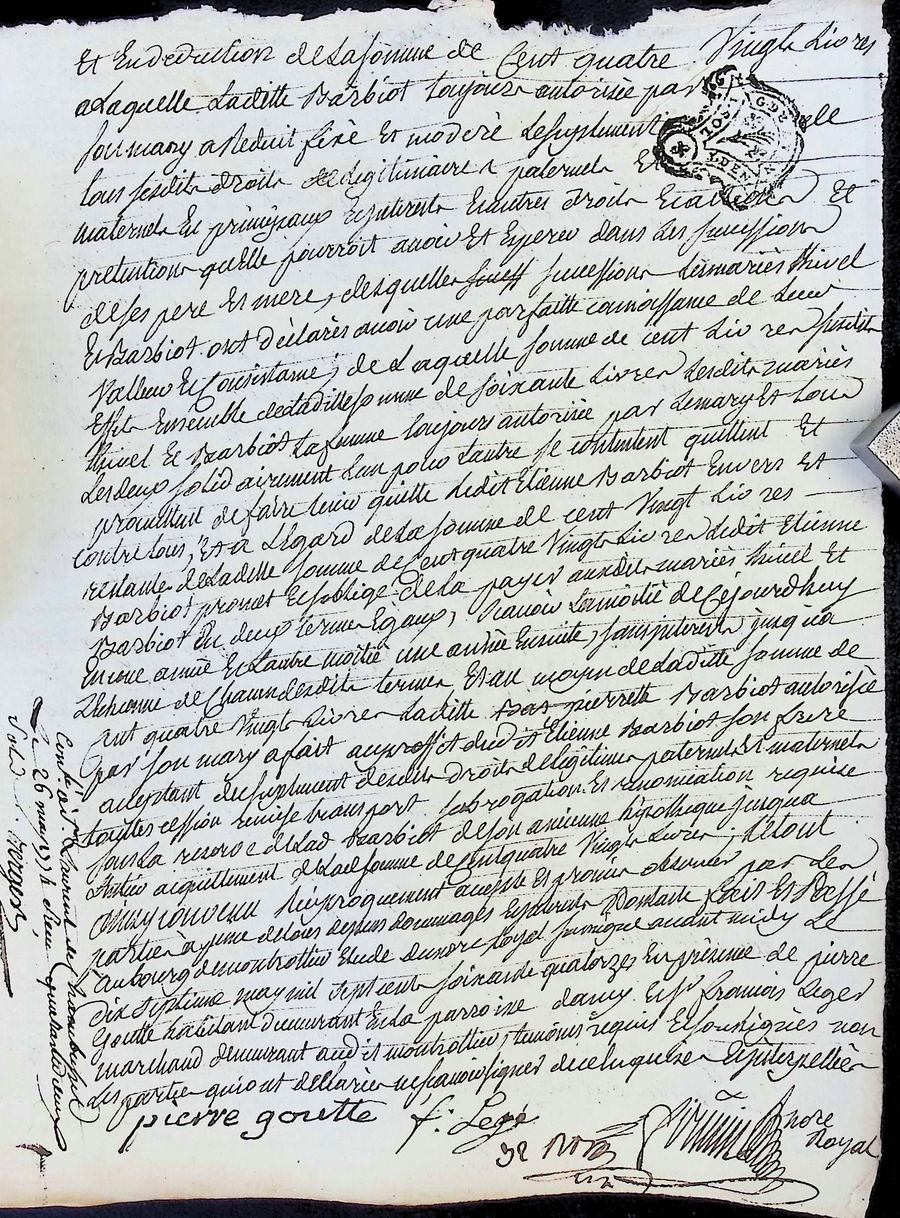 Et En deduction de La somme de Cent quatre Vingts Livres
a Laquelle Laditte Barbiot toujours autorisée par
son mary a Reduit fixé Et moderé Le suplement elle
tous sesdits droits de Legitimaires paternels Et
maternels En principaux Et autres droits Et
pretentions quelle pourroit avoir Et Esperer dans Les successions
de ses pere Et mere, desquelles successions Les mariés Thivel
Et Barbiot ont déclarés avoir une parfaitte connoissance de Leur
Valleur Et Consistance; de Laquelle somme de cent Livres
Ensemble de laditte somme de soixante Livres Lesdits mariés
Thivel Et Barbiot La femme toujours autorisée par Le mary Et tous
Les deux solidairement L'un pour L'autre se contentent quittent Et
promettent de faire tenir quitte Ledit Etienne Barbiot Envers Et
contre tous, Et a L'Egard de La somme de cent Vingt Livres
restante de Laditte somme de Cent quatre Vingts Livres Ledit Etienne
Barbiot promet Et s'oblige de La payer auxdits mariés Thivel Et
Barbiot En deux termes Egaux, scavoir La moitié de Cejourdhuy
En une année Et L'autre moitié une année Ensuite, sans interets jusqua
L'Echeance de Chacun desdits termes Et au moyen de Laditte somme de
Cent quatre Vingts Livres Laditte pierrette Barbiot autorisée
par son mary a fait au proffit dudit Etienne Barbiot son frere
acceptant du suplement desdits droits de Legitimes paternels Et maternels
touttes cession remise transport subrogation Et renonciation requise
sous La reserve de Lad. Barbiot de son ancienne hipotheque jusqua
Entier acquittement de Lad. somme de Cent quatre Vingts Livres, Le tout
ainsy convenu réciproquement accepté Et promis observer par Les
parties a peine de tous depens dommages Et interets Dont acte fait Et Passé
au bourg de montrottier Etude du nore Royal soussigné avant midy Le
dix septieme may mil sept cent soixante quatorze En presence de pierre
goutte habitant demeurant En La parroisse Et Sr francois Leger
marchand demeurant audit montrottier, temoins requis Et soussignés non
Les parties qui ont declarés ne scavoir signer de ce Enquises Et interpellées
pierre goutte
f: Legé
nore
Royal
Conllé à St Laurent de Chamousset
Le 26 may 1774 Reçu quarante deux
sols